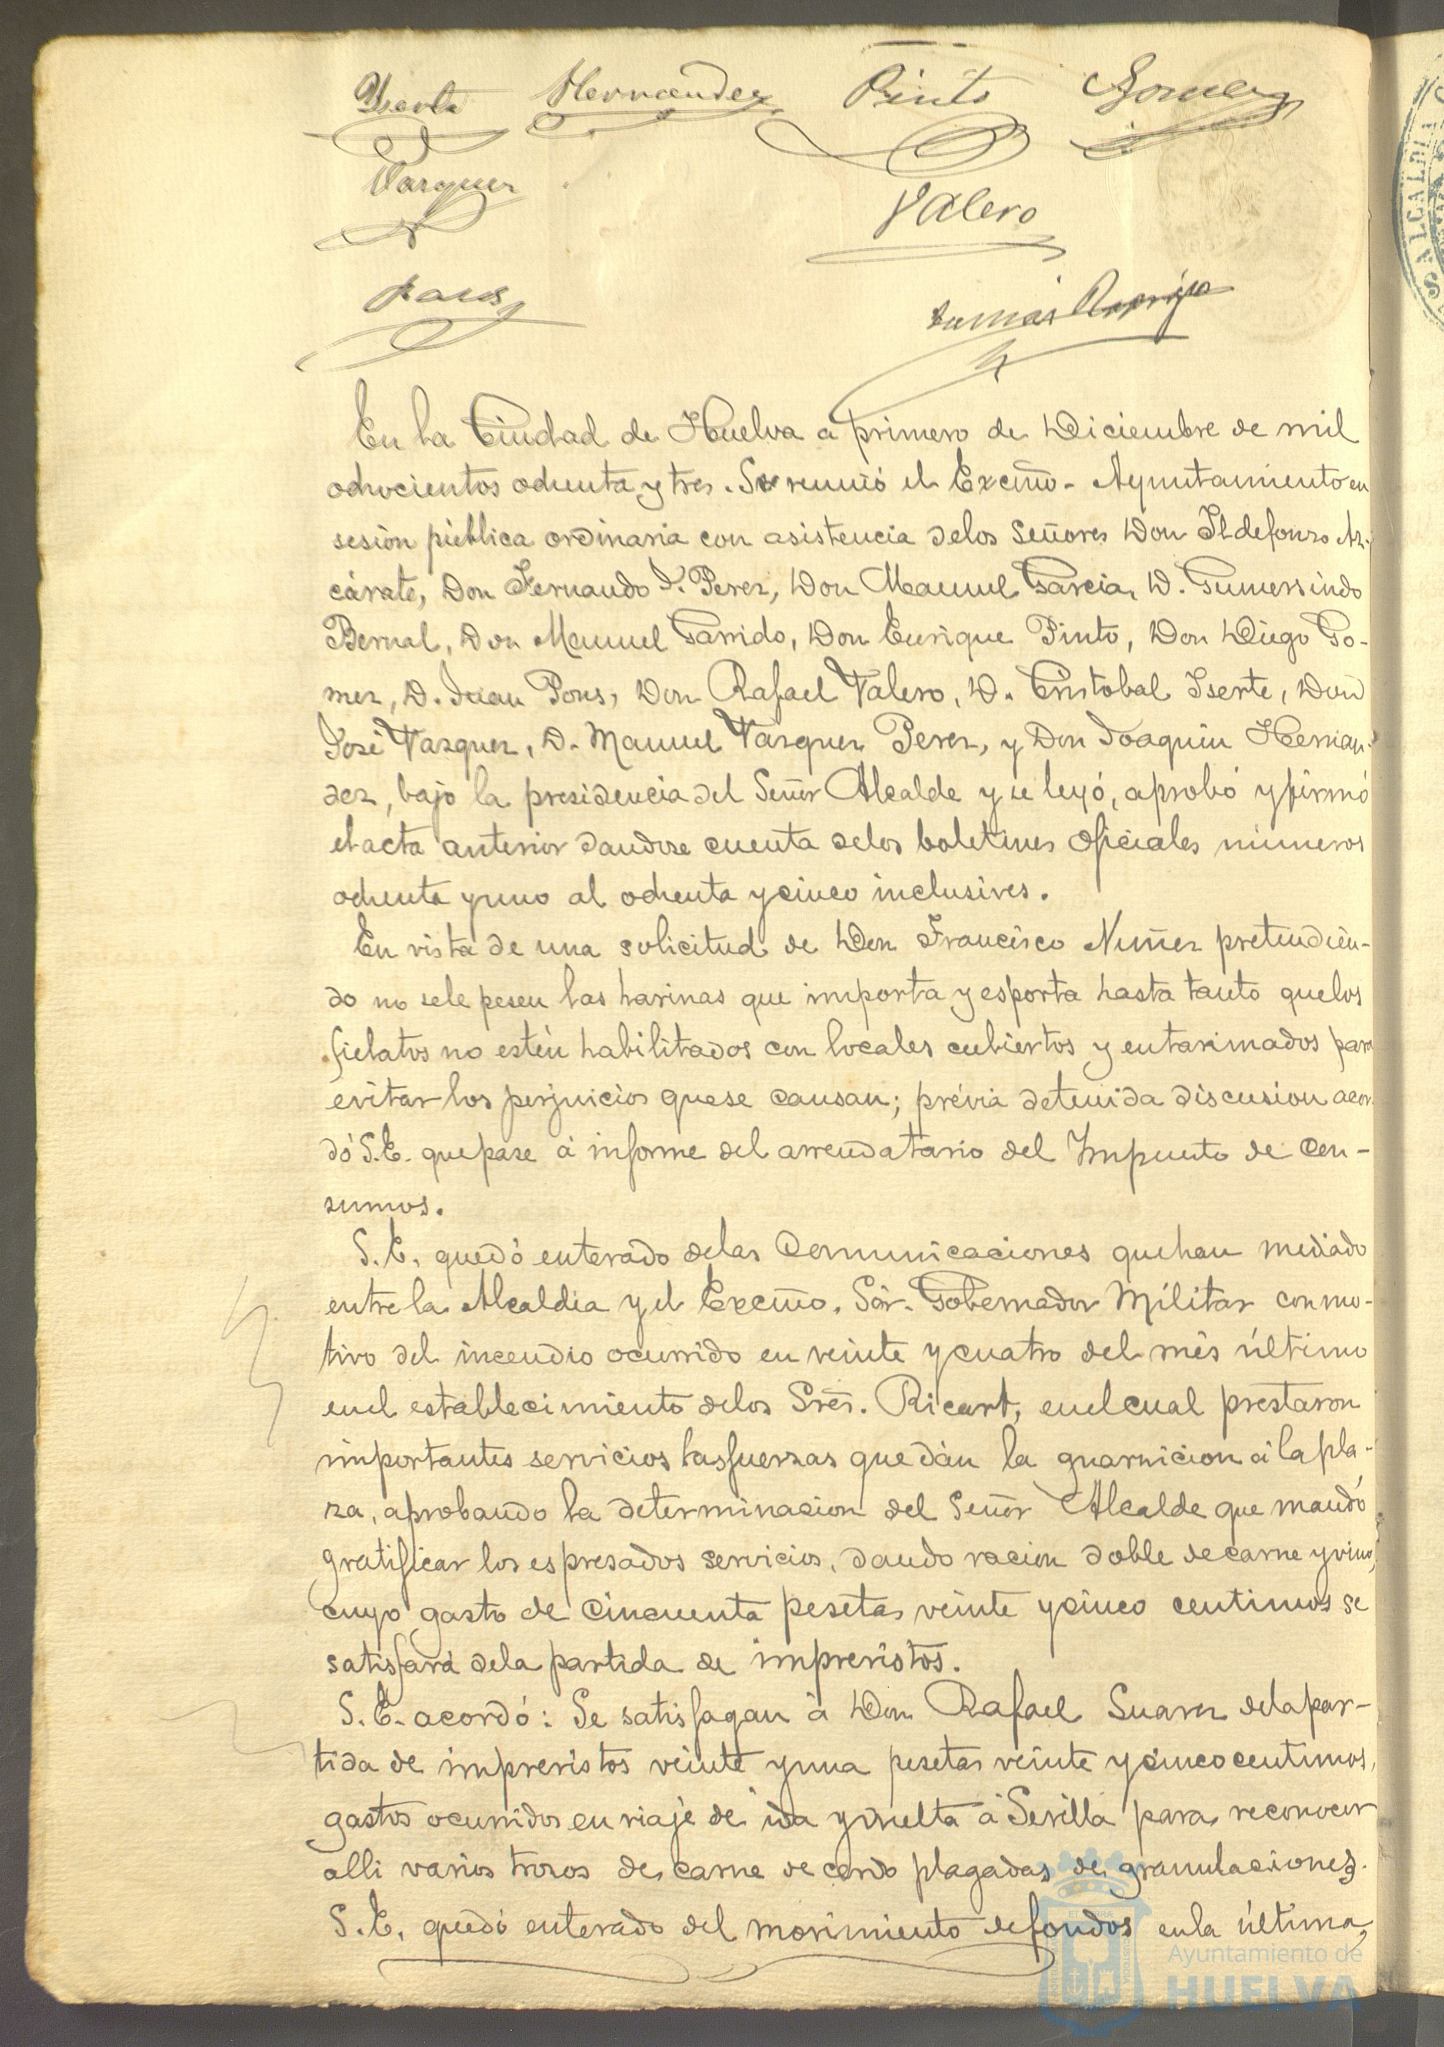 Yserte Hernandez Pinto Gomez
Vazquez
Valero
Pons
En la Ciudad de Huelva a primero de Diciembre de mil
ochocientos ochenta y tres. Se reunió el Excmo. Ayuntamiento en
sesión pública ordinaria con asistencia delos Señores Don Ildefonso Az-
cárate, Don Fernando J. Perez, Don Manuel Garcia, D. Gumersindo
Bernal, Don Manuel Garrido, Don Enrique Pinto, Don Diego Go-
mez, D. Juan Pons, Don Rafael Valero, D. Cristobal Iserte, Don
José Vazquez, D. Manuel Vazquez Perez, y Don Joaquin Hernan-
dez, bajo la presidencia del Señor Alcalde y se leyó, aprobó y firmó
el acta anterior dandose cuenta delos boletines oficiales números
ochenta y uno al ochenta y cinco inclusives.
En vista de una solicitud de Don Francisco Nuñez pretendien-
do no sele pesen las harinas que importa y esporta hasta tanto quelos
fielatos no estén habilitados con locales cubiertos y entarimados para
evitar los perjuicios quese causan; prévia detenida discusion acor-
dó S.E. que pase á informe del arrendatario del Impuesto de Con-
sumos.
S.E. quedó enterado delas Comunicaciones que han mediado
entre la Alcaldia y el Excmo. Sór. Gobernador Militar con mo-
tivo del incendio ocurrido en veinte y cuatro del més último
enel establecimiento delos Sres. Ricart, enel cual prestaron
importantes servicios las fuerzas que dán la guarnicion á la pla-
za, aprobando la determinacion del Señor Alcalde que mandó
gratificar los espresados servicios, dando racion doble de carne y vino,
cuyo gasto de Cincuenta pesetas veinte y cinco centimos se
satisfará dela partida de imprevistos.
S.E. acordó: Se satisfagan á Don Rafael Suarez dela par-
tida de imprevistos veinte y una pesetas veinte y cinco centimos,
gastos ocurridos en viaje de ida y vuelta á Sevilla para reconocer
alli varios trozos de carne de cerdo plagadas de granulaciones.
S.E. quedó enterado del movimiento de fondos en la última
Ayuntamiento de
HUELVA
ALCALDIA